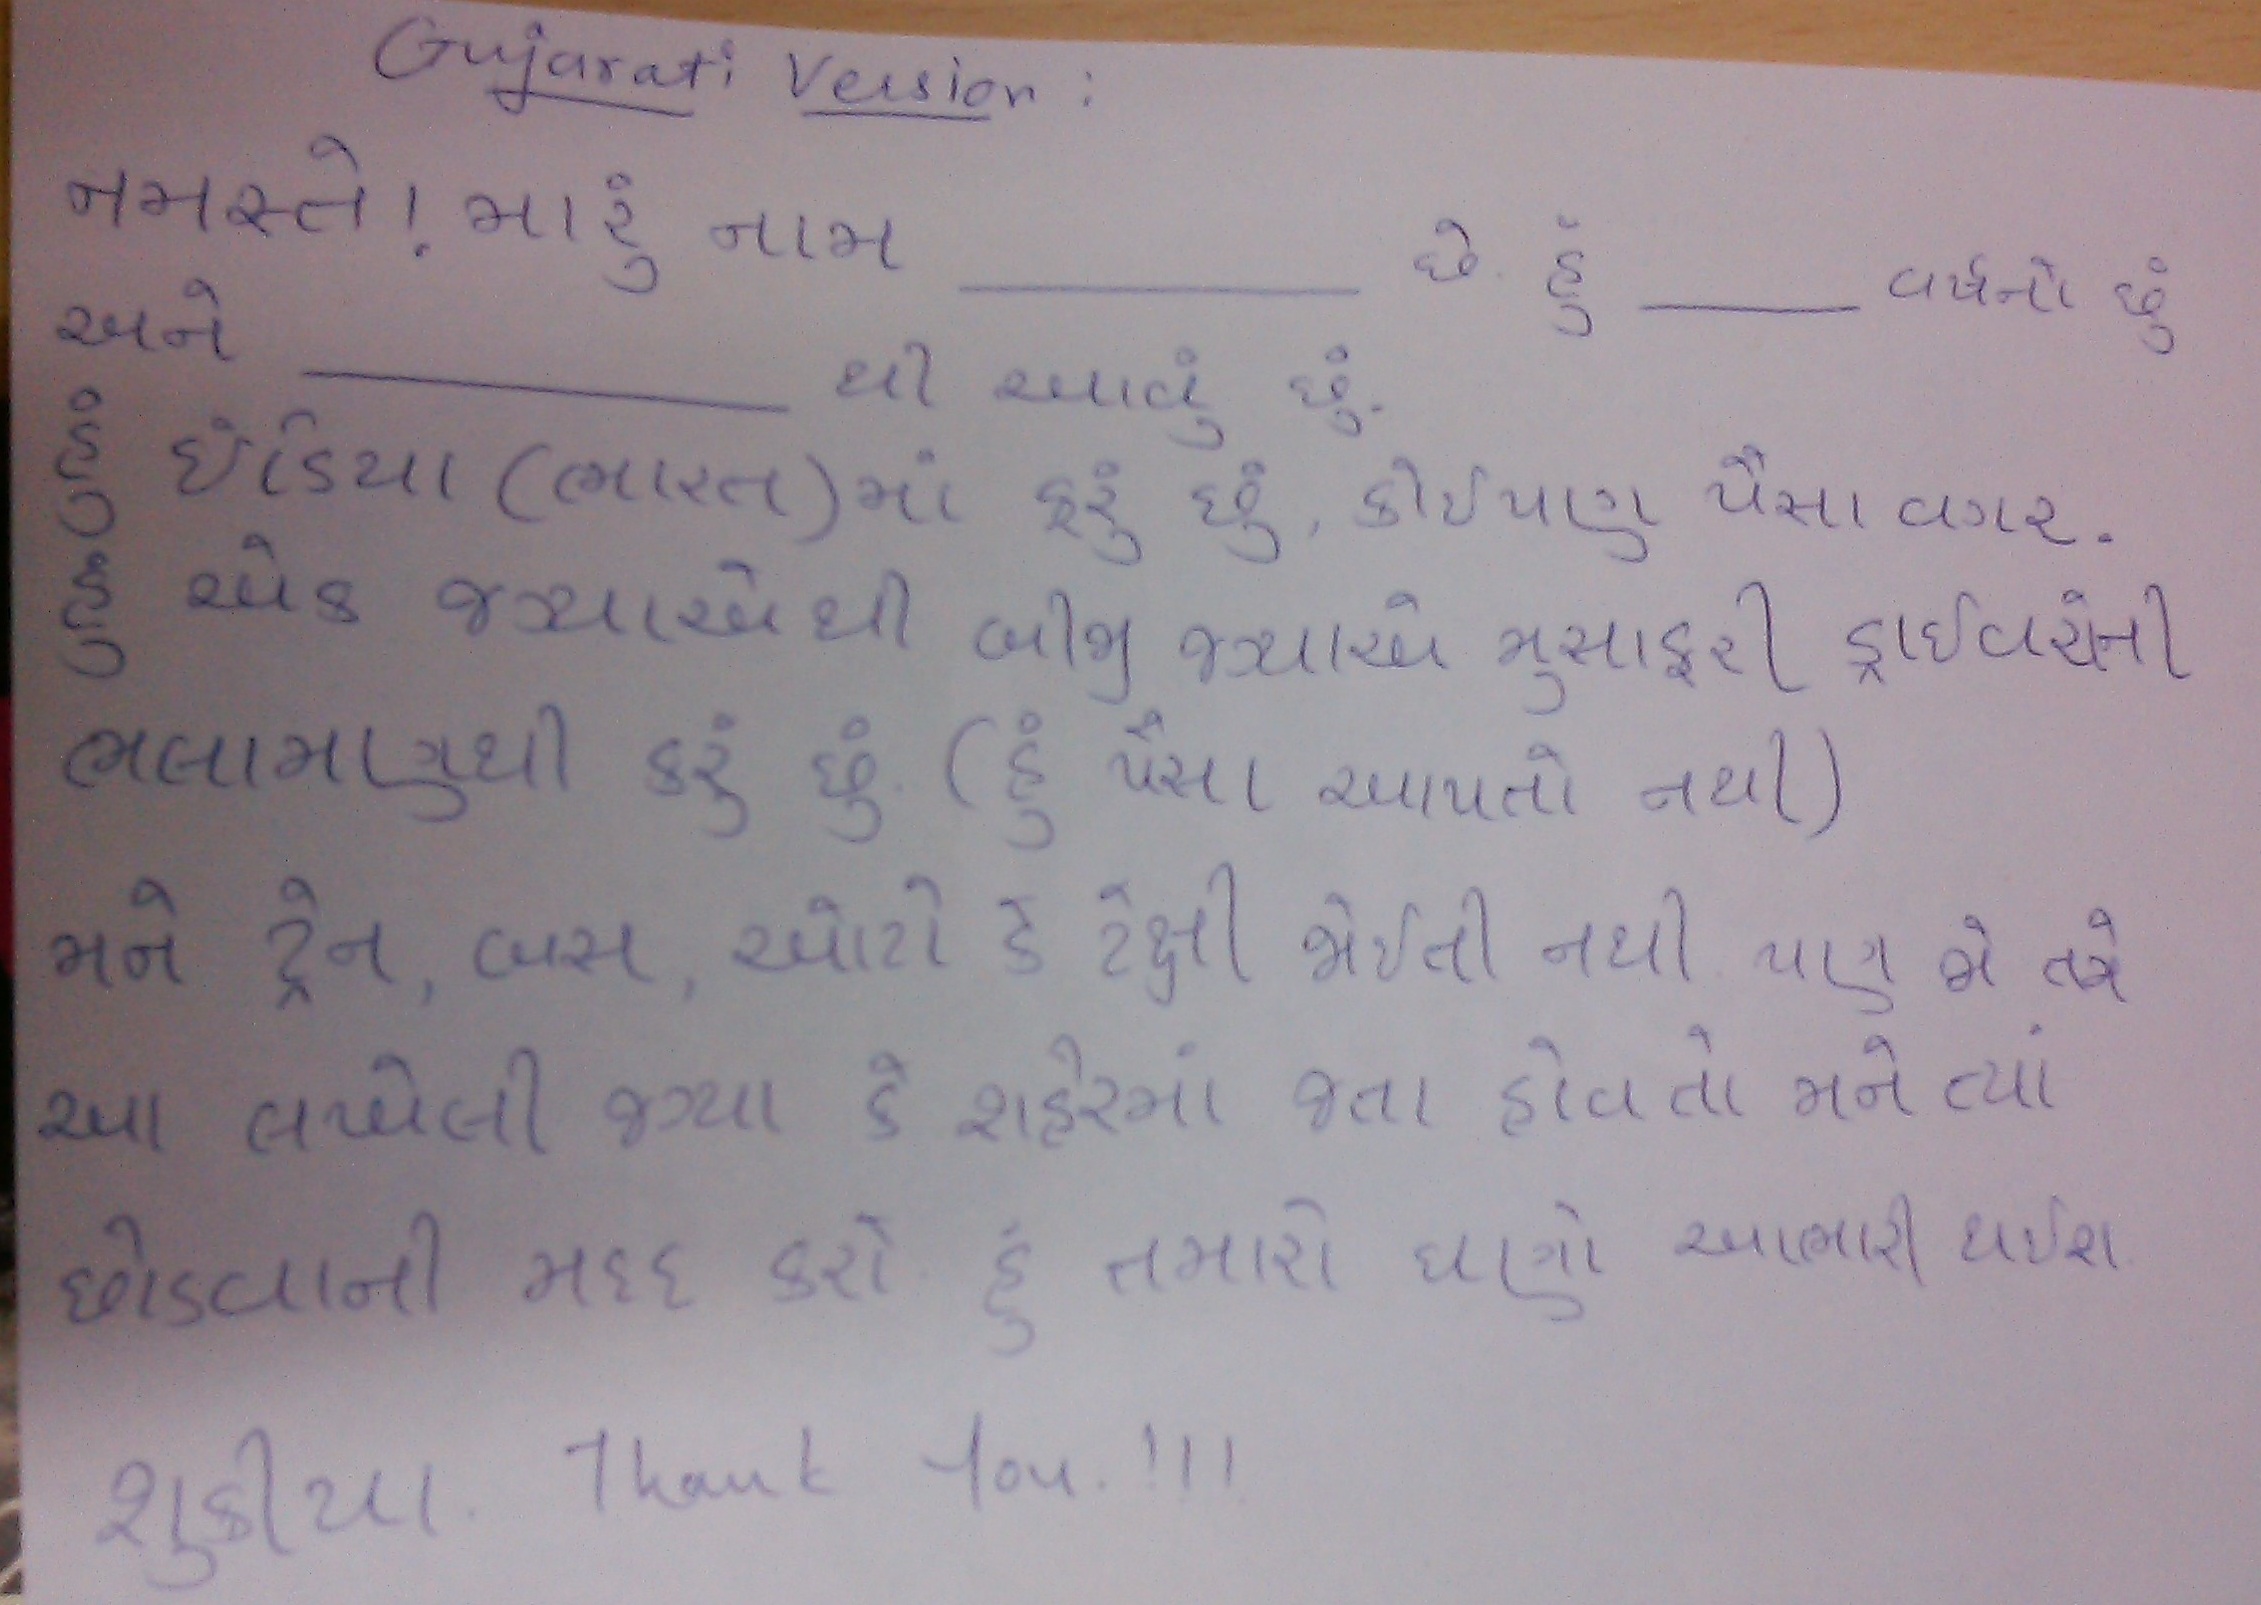 Gujarati Version :
નમસ્તે! મારું નામ __________ છે. હું _____ વર્ષનો છું
અને ____________ થી આવું છું.
હું ઈંડિયા (ભારત)માં ફરું છું, કોઈપણ પૈસા વગર.
હું એક જગ્યાએથી બીજી જગ્યાએ મુસાફરી ડ્રાઈવરોની
ભલામણથી કરું છું. (હું પૈસા આપતો નથી)
મને ટ્રેન, બસ, ઓટો કે ટેક્ષી જોઈતી નથી. પણ જો તમે
આ લખેલી જગ્યા કે શહેરમાં જતા હોવ તો મને ત્યાં
છોડવાની મદદ કરો. હું તમારો ઘણો આભારી થઈશ.
શુક્રીયા. Thank You.!!!